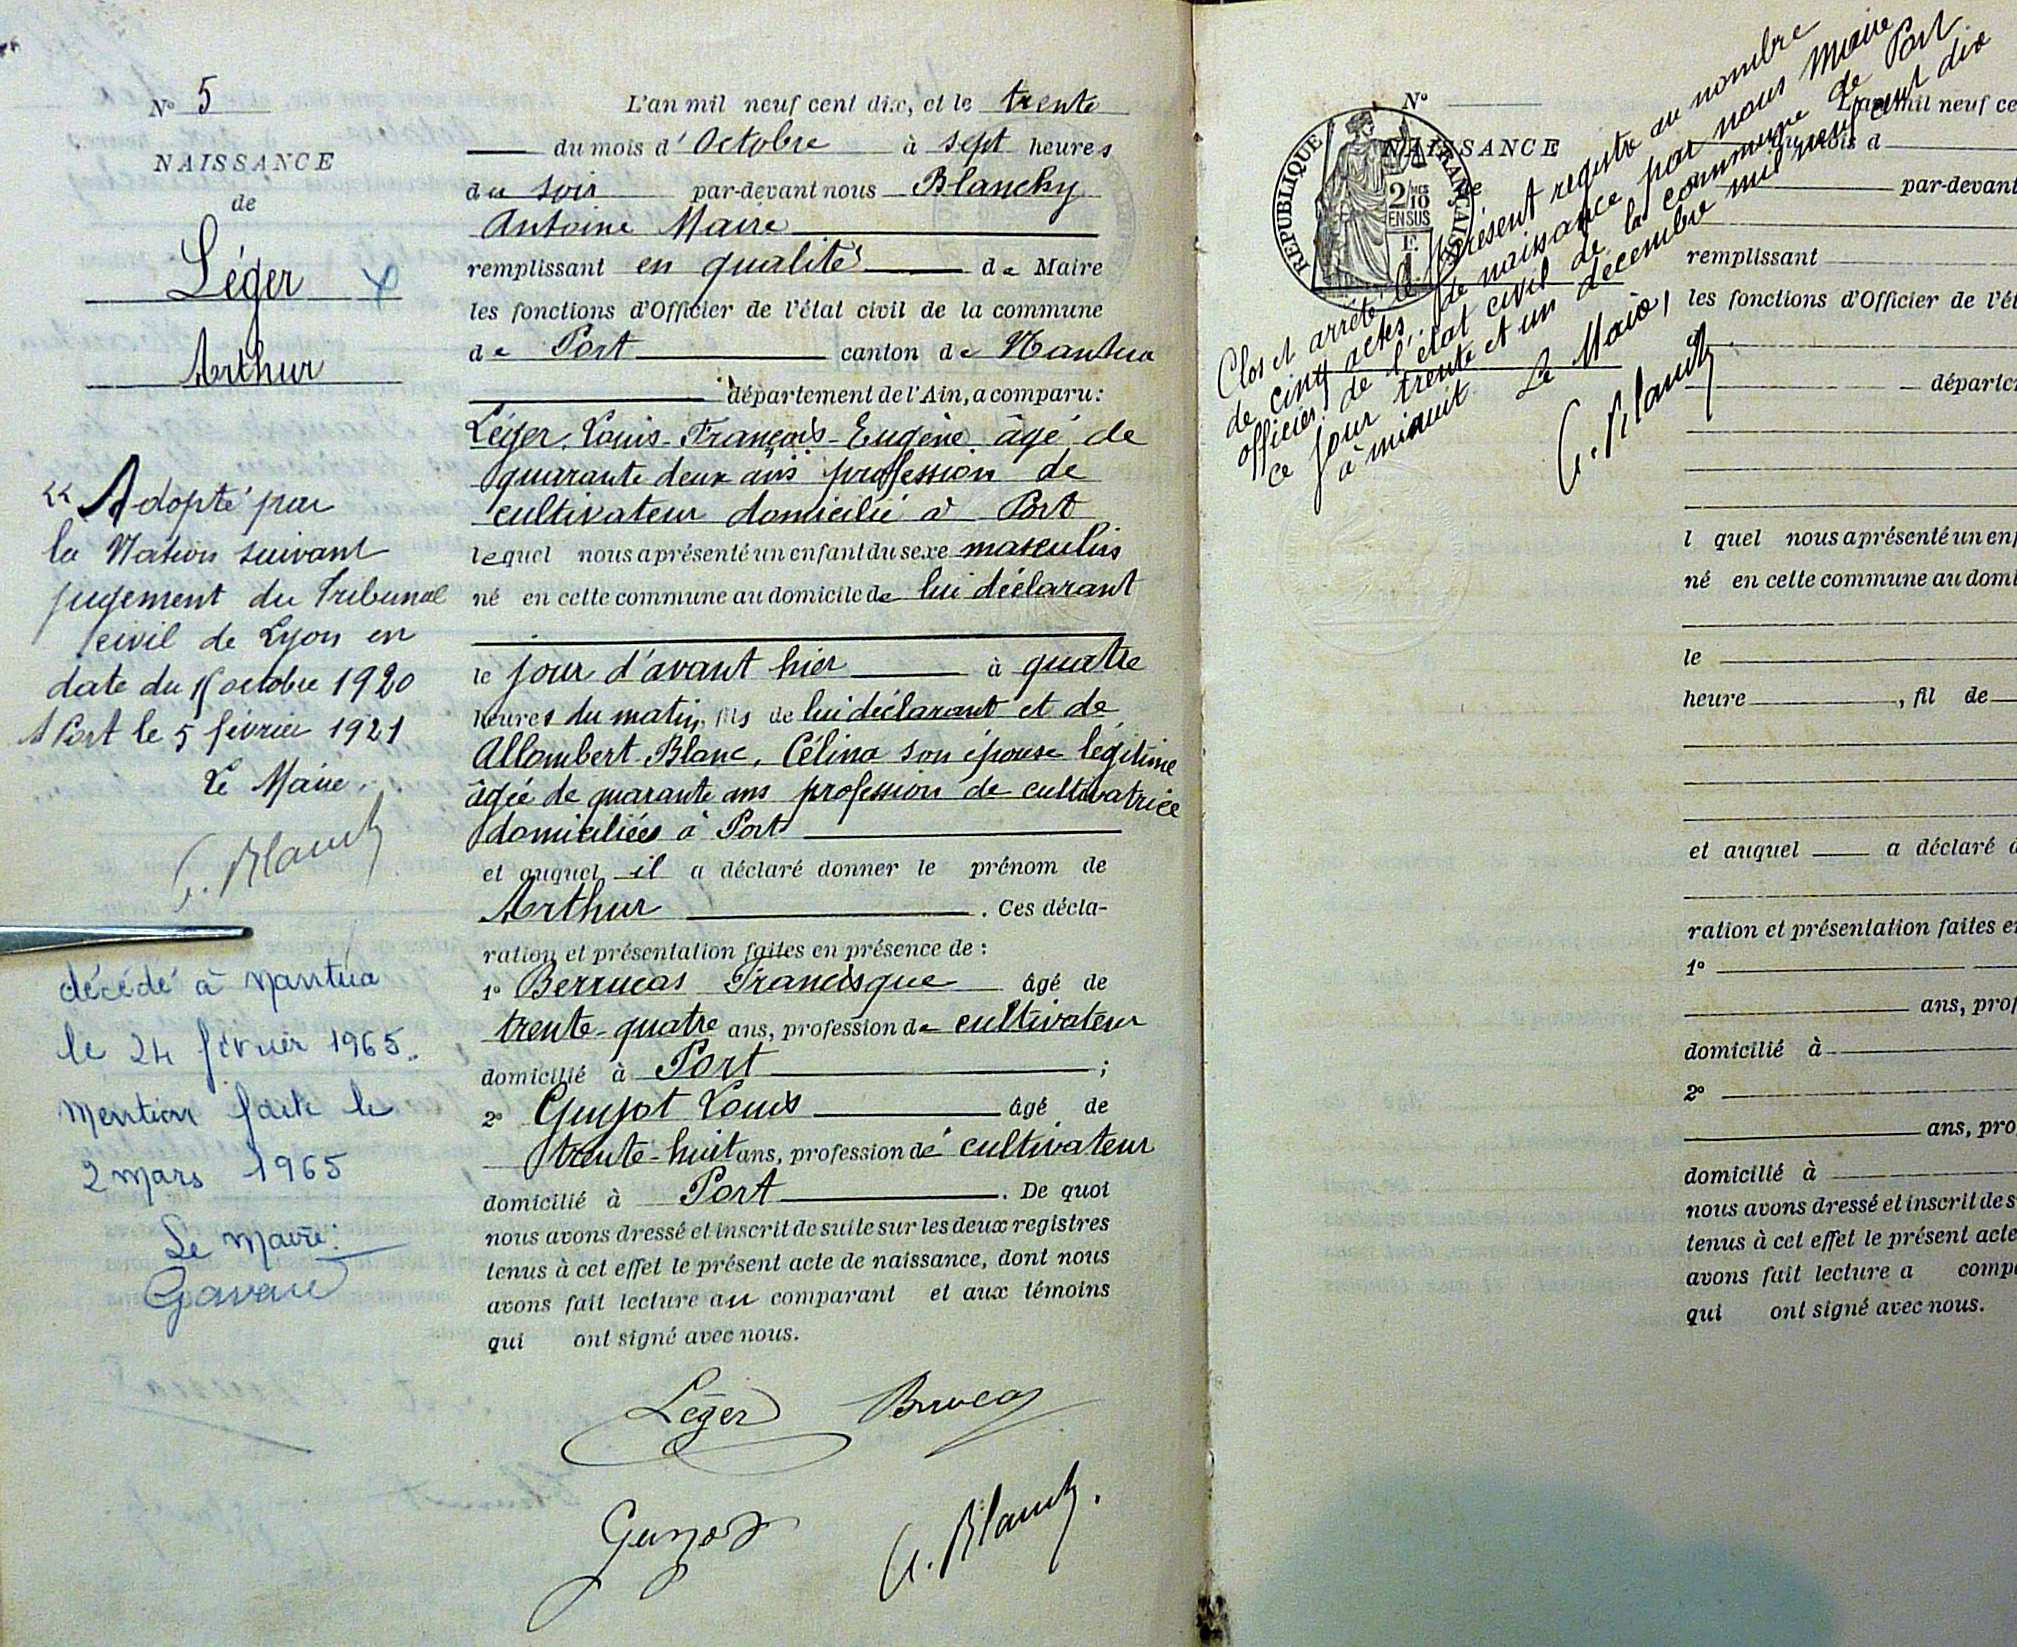 N° 5
NAISSANCE
de
Léger
Arthur
"Adopté par
la Nation suivant
jugement du Tribunal
civil de Lyon en
date du octobre 1920
A Port le 5 février 1921
Le Maire,
A. Blanchy
décédé à Nantua
le 24 février 1965.
Mention faite le
2 mars 1965
Le Maire:
L'an mil neuf cent dix, et le trente
du mois d'Octobre à sept heures
du soir par-devant nous Blanchy
Antoine Maire
remplissant en qualité de Maire
les fonctions d'Officier de l'état civil de la commune
de Port canton de Nantua
département de l'Ain, a comparu:
Léger, Louis-François-Eugène âgé de
quarante deux ans profession de
cultivateur domicilié à Port
lequel nous a présenté un enfant du sexe masculin
né en cette commune au domicile de lui déclarant
le jour d'avant hier à quatre
heures du matin, fils de lui déclarant et de
Allombert-Blanc, Célina son épouse légitime
âgée de quarante ans profession de cultivatrice
domiciliées à Port
et auquel il a déclaré donner le prénom de
Arthur . Ces décla-
ration et présentation faites en présence de :
1° Berrucas Francisque âgé de
trente-quatre ans, profession de cultivateur
domicilié à Port ;
2° Guyot Louis âgé de
trente-huit ans, profession de cultivateur
domicilié à Port . De quoi
nous avons dressé et inscrit de suite sur les deux registres
tenus à cet effet le présent acte de naissance, dont nous
avons fait lecture au comparant et aux témoins
qui ont signé avec nous.
Léger Berrucas
Guyot A. Blanchy.
Clos et arrêté le présent registre au nombre
de cinq actes de naissance par nous Maire
officier de l'état civil de la commune de Port
ce jour trente et un décembre mil neuf cent dix
à minuit Le Maire,
A. Blanchy
RÉPUBLIQUE FRANÇAISE
2/10
EN SUS
N°
NAISSANCE
de
L'an mil neuf ce
du mois d
par-devant
remplissant
les fonctions d'Officier de l'ét
départe
l quel nous a présenté un enf
né en cette commune au domi
le
heure , fil de
et auquel a déclaré d
ration et présentation faites e
1°
ans, prof
domicilié à
2°
ans, pro
domicilié à
nous avons dressé et inscrit de s
tenus à cet effet le présent acte
avons fait lecture a comp
qui ont signé avec nous.